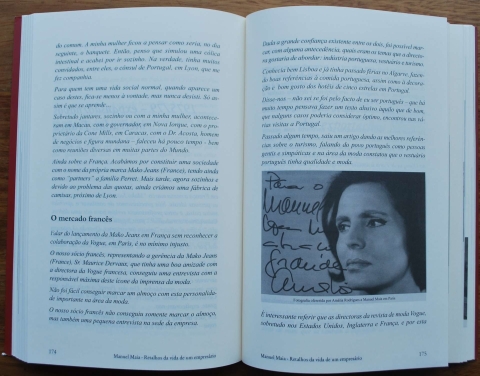 do comum. A minha mulher ficou a pensar como seria, no dia
seguinte, o banquete. Então, penso que simulou uma cólica
intestinal e acabei por ir sozinho. Na verdade, tinha muitos
convidados, entre eles, o cônsul de Portugal, em Lyon, que me
fez companhia.
Para quem tem uma vida social normal, quando aparece um
caso destes, fica-se menos à vontade, mas nunca desisti. Só as-
sim é que se aprende...
Sobretudo jantares, sozinho ou com a minha mulher, aconte-
ceram em Macau, com o governador, em Nova Iorque, com o pro-
prietário da Cone Mills, em Caracas, com o Dr. Acosta, homem
de negócios e figura mundana - faleceu há pouco tempo - bem
como reuniões diversas em muitas partes do Mundo.
Ainda sobre a França. Acabámos por constituir uma sociedade
com o nome da própria marca Mako Jeans (France), tendo ainda
como "partners" a família Pernet. Mais tarde, agora sozinhos e
devido ao problema das quotas, ainda criámos uma fábrica de
camisas, próximo de Lyon.
O mercado francês
Falar do lançamento da Mako Jeans em França sem reconhecer a
colaboração da Vogue, em Paris, é no mínimo injusto.
O nosso sócio francês, representando a gerência da Mako Jeans
(France), Sr. Maurice Dervaux, que tinha uma boa amizade com
a directora da Vogue francesa, conseguiu uma entrevista com a
responsável máxima deste ícone da imprensa da moda.
Não foi fácil conseguir marcar um almoço com esta personalida-
de importante na área da moda.
O nosso sócio francês não conseguiu somente marcar o almoço,
mas também uma pequena entrevista na sede da empresa.
174
Manuel Maia - Retalhos da vida de um empresário
Dada a grande confiança existente entre os dois, foi possível mar-
car, com alguma antecedência, quais eram os temas que a direc-
tora gostaria de abordar: indústria portuguesa, vestuário e turismo.
Conhecia bem Lisboa e já tinha passado férias no Algarve, fazen-
do boas referências à comida portuguesa, assim como à decora-
ção e bom gosto dos hotéis de cinco estrelas em Portugal.
Disse-nos - não sei se foi pelo facto de eu ser português - que há
muito tempo pensava fazer um texto alusivo àquilo que de bom,
que nalguns casos poderia considerar óptimo, encontrou nas vá-
rias visitas a Portugal.
Passado algum tempo, saiu um artigo dando as melhores referên-
cias sobre o turismo, falando do povo português como pessoas
gentis e simpáticas e na área da moda contatou que o vestuário
português tinha qualidade e moda.
Para o
Manuel
com
grande
Amália
Fotografia oferecida por Amália Rodrigues a Manuel Maia em Paris
É interessante referir que as directoras da revista de moda Vogue,
sobretudo nos Estados Unidos, Inglaterra e França, e por esta
Manuel Maia - Retalhos da vida de um empresário
175